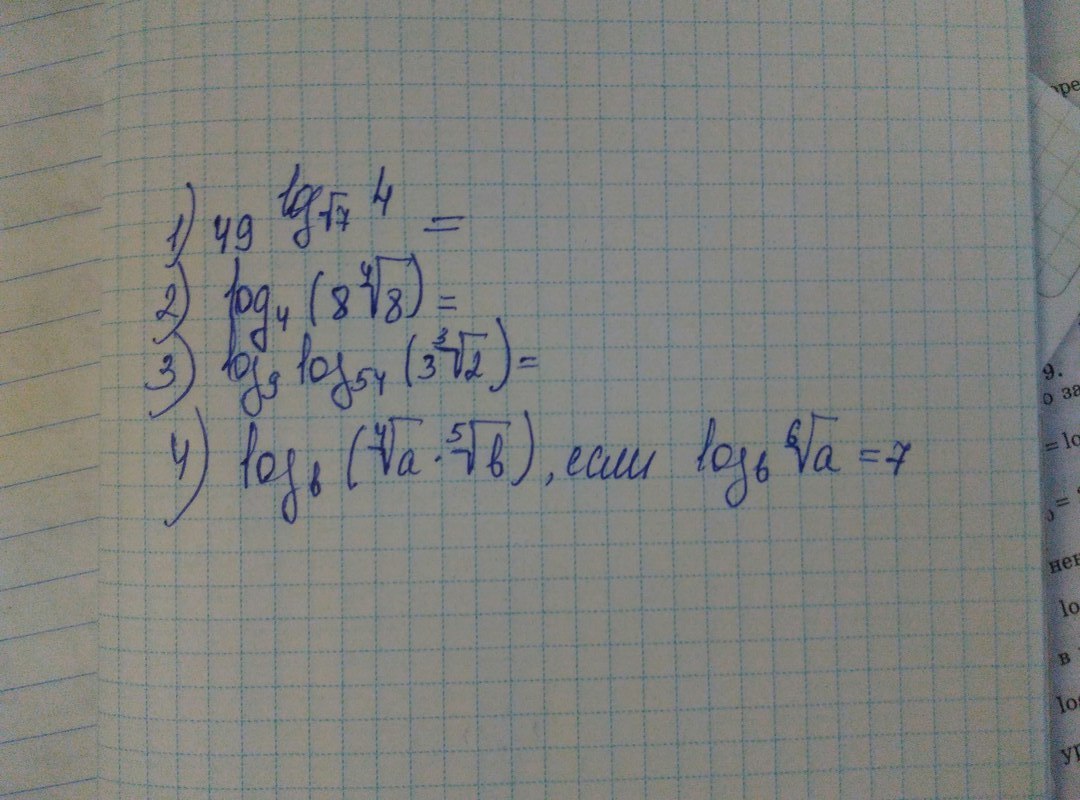 1) 49^log_√7 4 =
2) log₄ (8 ⁴√8) =
3) log₉ log₅₄ (3 ³√2) =
4) log_b (⁴√a · ⁵√b), если log_b ⁶√a = 7
9.
о за
= lo
lo
в
ур